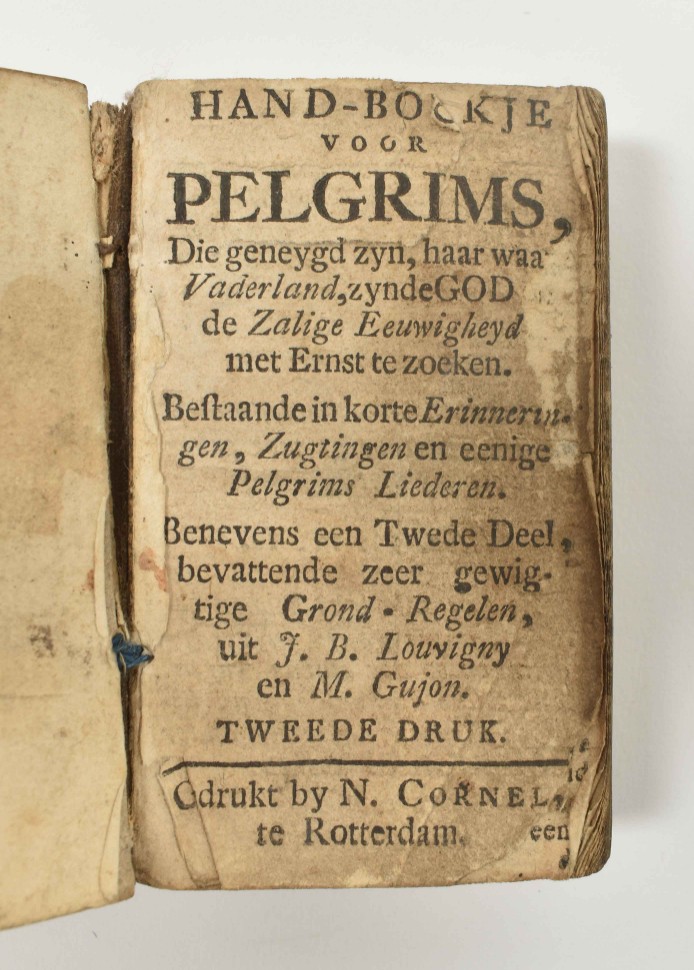 HAND-BOEKJE
VOOR
PELGRIMS,
Die geneygd zyn, haar waa
Vaderland, zynde GOD
de Zalige Eeuwigheyd
met Ernst te zoeken.
Beſtaande in korte Erinnerin-
gen, Zugtingen en eenige
Pelgrims Liederen.
Benevens een Twede Deel,
bevattende zeer gewig-
tige Grond-Regelen,
uit J. B. Louvigny
en M. Gujon.
TWEEDE DRUK.
Gdrukt by N. CORNEL,
te Rotterdam.
een